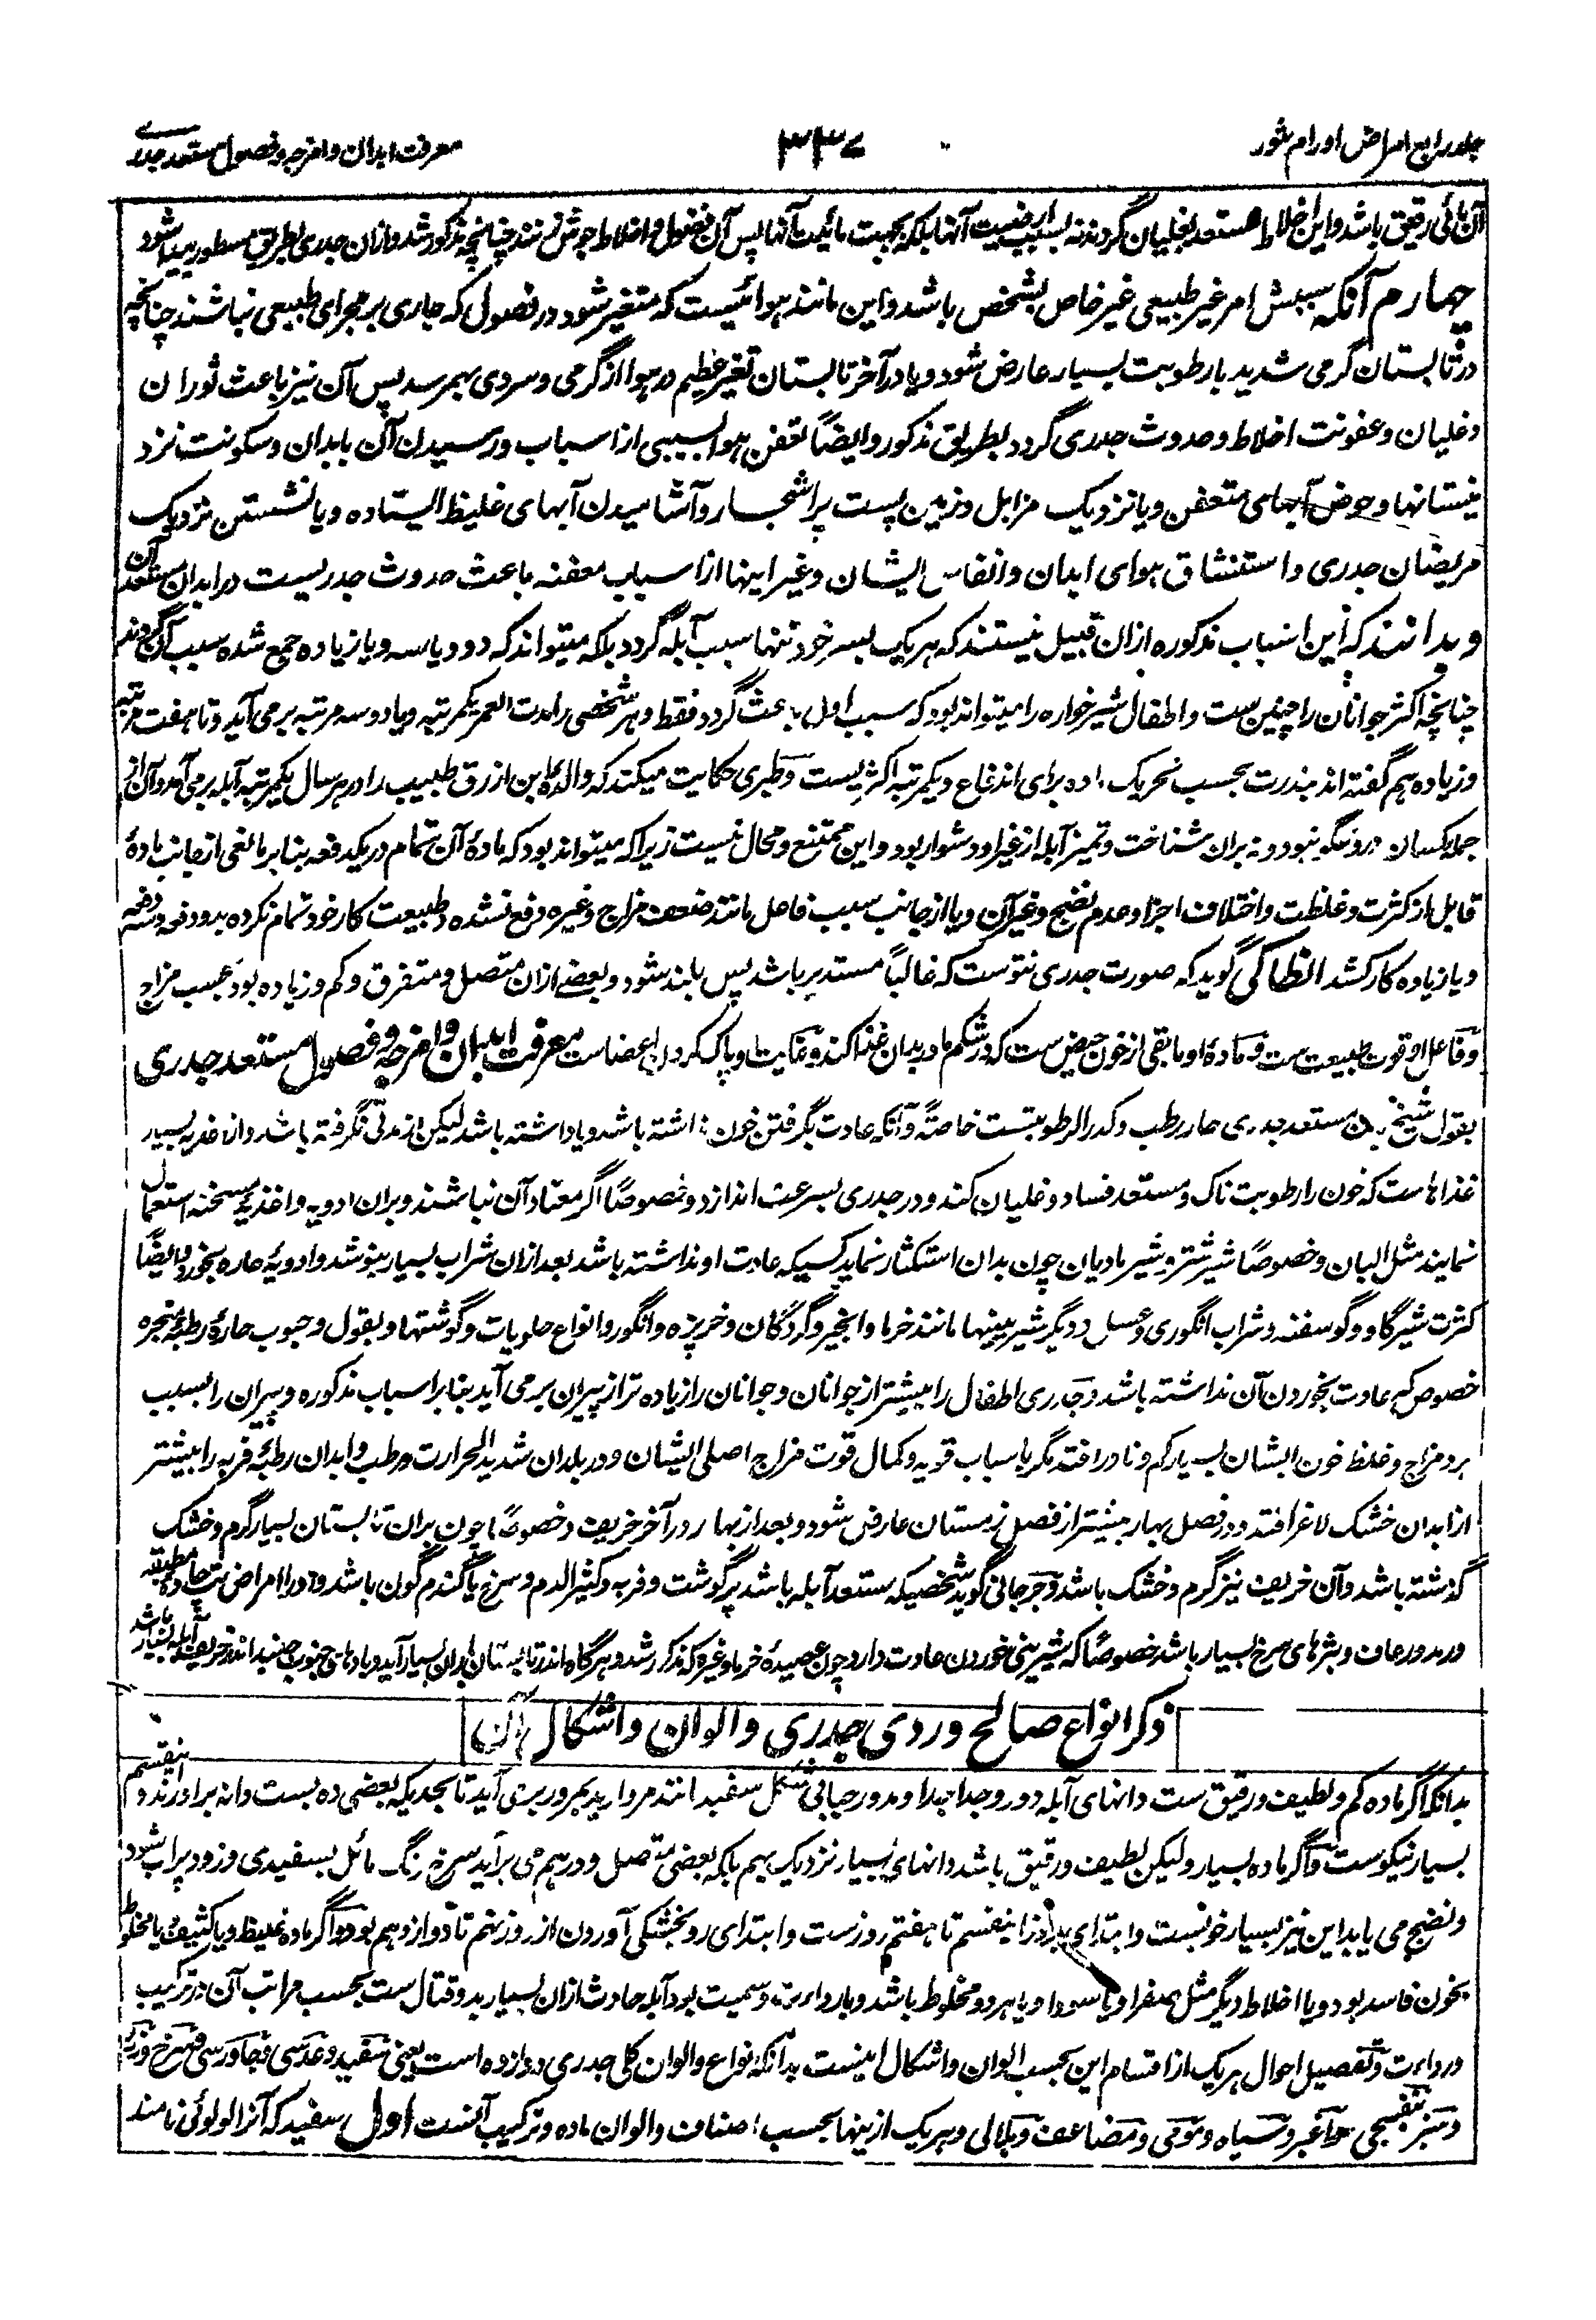 جلد رابع امراض اورام بثور ۳۳۷ معرفت ابدان و امزجه و فصول مستعد جدری
آن مائی رقیق باشد و این اخلاط مستعد بغلیان گردند نه بسبب ارضیت آنها بلکه بجهت مائیت آنها پس آن فضول و اخلاط جوش زنند چنانچه مذکور شد و ازان جدری بطریق مسطور پیدا شود
چهارم آنکه سببش امر غیر طبیعی غیر خاص بشخص باشد و این مانند هوائیست که متغیر شود در فصول که جاری بر مجرای طبیعی نباشند چنانچه
در تابستان گرمی شدید با رطوبت بسیار عارض شود و یا در آخر تابستان تغیر عظیم در هوا از گرمی و سردی بهم رسد پس آن نیز باعث ثوران
و غلیان و عفونت اخلاط و حدوث جدری گردد بطریق مذکور و ایضاً تعفن هوا بسببی از اسباب و رسیدن آن بابدان و سکونت نزد
نیستانها و حوض آبهای متعفن و یا نزدیک مزابل و زمین پست پر اشجار و آشامیدن آبهای غلیظ ایستاده و یا نشستن نزدیک
مریضان جدری و استنشاق هوای ابدان و انفاس ایشان و غیر اینها از اسباب معفنه باعث حدوث جدریست در ابدان مستعد آن
و بدانند که این اسباب مذکوره ازان قبیل نیستند که هر یک بسر خود تنها سبب آبله گردد بلکه میتواند که دو و یا سه و یا زیاده جمع شده سبب آن گردند
چنانچه اکثر جوانان را چنین ست و اطفال شیر خواره را میتواند بود که سبب اول باعث گردد فقط و هر شخصی را مدت العمر یکمرتبه و یا دو سه مرتبه بر می آید و تا هفت مرتبه
و زیاده هم گفته اند بندرت بحسب تحریک ماده برای اندفاع و یکمرتبه اکثریست و طبری حکایت میکند که والدهٔ ابن ازرق طبیب را در هر سال یکمرتبه آبله بر می آمد و آن از
جمله کسان دروغگو نبود و نه بران شناخت و تمیز آبله از غیر او دشوار بود و این ممتنع و محال نیست زیرا که میتواند بود که مادهٔ آن تمام در یکدفعه بنا بر مانعی از جانب مادهٔ
قابل از کثرت و غلظت و اختلاف اجزا و عدم نضج و غیر آن و یا از جانب سبب فاعل مانند ضعف مزاج و غیره دفع نشده و طبیعت کار خود تمام نکرده بدو دفعه و سه دفعه
و یا زیاده کار کشد انطاکی گوید که صورت جدری نتوست که غالباً مستدیر باشد پس بلند شود و بعضی ازان متصل و متفرق و کم و زیاده بود بحسب مزاج
و فاعل او قوت طبیعت ست و مادهٔ او مابقی از خون حیض ست که در شکم مادر بدان غذا کند و غایت او پاک کردن اعضاست معرفت ابدان و امزجه و فصول مستعد جدری
بقول شیخ بدن مستعد جدری حار رطب و کدر الرطوبتست خاصةً و آنکه عادت بگرفتن خون نداشته باشد و یا داشته باشد لیکن از مدتی نگرفته باشد و از اغذیه بسیار
غذاهاست که خون را رطوبت ناک و مستعد فساد و غلیان کند و در جدری بسرعت اندازد و خصوصاً اگر معتاد آن نباشند و بران ادویه و اغذیهٔ مسخنه استعمال
نمایند مثل البان و خصوصاً شیر شتر و شیر مادیان چون بدان استکثار نماید کسیکه عادت او نداشته باشد بعد ازان شراب بسیار بنوشد و ادویهٔ حاره بخورد و ایضاً
کثرت شیر گاو و گوسفند و شراب انگوری و عسل و دیگر شیرینیها مانند خرما و انجیر و گردگان و خرپزه و انگور و انواع حلویات و گوشتها و بقول و حبوب حارهٔ رطبهٔ مبخره
خصوص که عادت بخوردن آن نداشته باشد و جدری اطفال را بیشتر از جوانان و جوانان را زیاده تر از پیران بر می آید بنا بر اسباب مذکوره و پیران را بسبب
برد مزاج و غلظ خون ایشان بسیار کم و نادر افتد مگر با سباب قویه و کمال قوت مزاج اصلی ایشان و در بلدان شدید الحرارت و رطب و ابدان رطبهٔ فربه را بیشتر
از ابدان خشک لاغر افتد و در فصل بهار بیشتر از فصل زمستان عارض شود و بعد از بهار در آخر خریف و خصوصاً چون بران تابستان بسیار گرم و خشک
گذشته باشد و آن خریف نیز گرم و خشک باشد و جرجانی گوید شخصیکه مستعد آبله باشد پر گوشت و فربه و کثیر الدم و سرخ یا گندم گون باشد و او را امراض تب حاده مطبقه
و رمد و رعاف و بثرهای سرخ بسیار باشد خصوصاً که شیرینی خوردن عادت دارد چون عصیدهٔ خرما و غیره که مذکور شد و هرگاه اندر تابستان باران بسیار آید و بادهای جنوب جنبد اندر خریف آبله بسیار باشد
ذکر انواع صالح و ردی جدری و الوان و اشکال آن
بدانکه اگر ماده کم و لطیف و رقیق ست دانهای آبله دور و جدا جدا و مدور حبابی شکل سفید مانند مروارید بمرور بر می آید تا بحدیکه بعضی ده بست دانه بر آورند و اینقسم
بسیار نیکوست و اگر ماده بسیار و لیکن لطیف و رقیق باشد دانهای بسیار نزدیک بهم بلکه بعضی متصل و درهم می برآید سرخ رنگ مائل بسفیدی و زود پر آب شود
و نضج می یابد این نیز بسیار خوبست و ابتدای بروز اینقسم تا هفتم روزست و ابتدای رو بخشکی آوردن از روز نهم تا دوازدهم بود و اگر ماده غلیظ و یا کثیف و یا مخلوط
بخون فاسد بود و یا اخلاط دیگر مثل صفرا و یا سودا و یا هر دو مخلوط باشد و با رداءت و سمیت بود آبله حادث ازان بسیار بد و قتال ست بحسب مراتب آن در ترکیب
و رداءت و تفصیل احوال هر یک از اقسام این بحسب الوان و اشکال اینست بدانکه انواع و الوان کلی جدری دوازده است یعنی سفید و عدسی و جاورسی و سرخ و زرد
و سبز بنفسجی و اغبر و سیاه و مومی و مضاعف و پلالی و هر یک ازینها بحسب اصناف و الوان ماده و ترکیب آنست اول سفید که آنرا لولوئی نامند